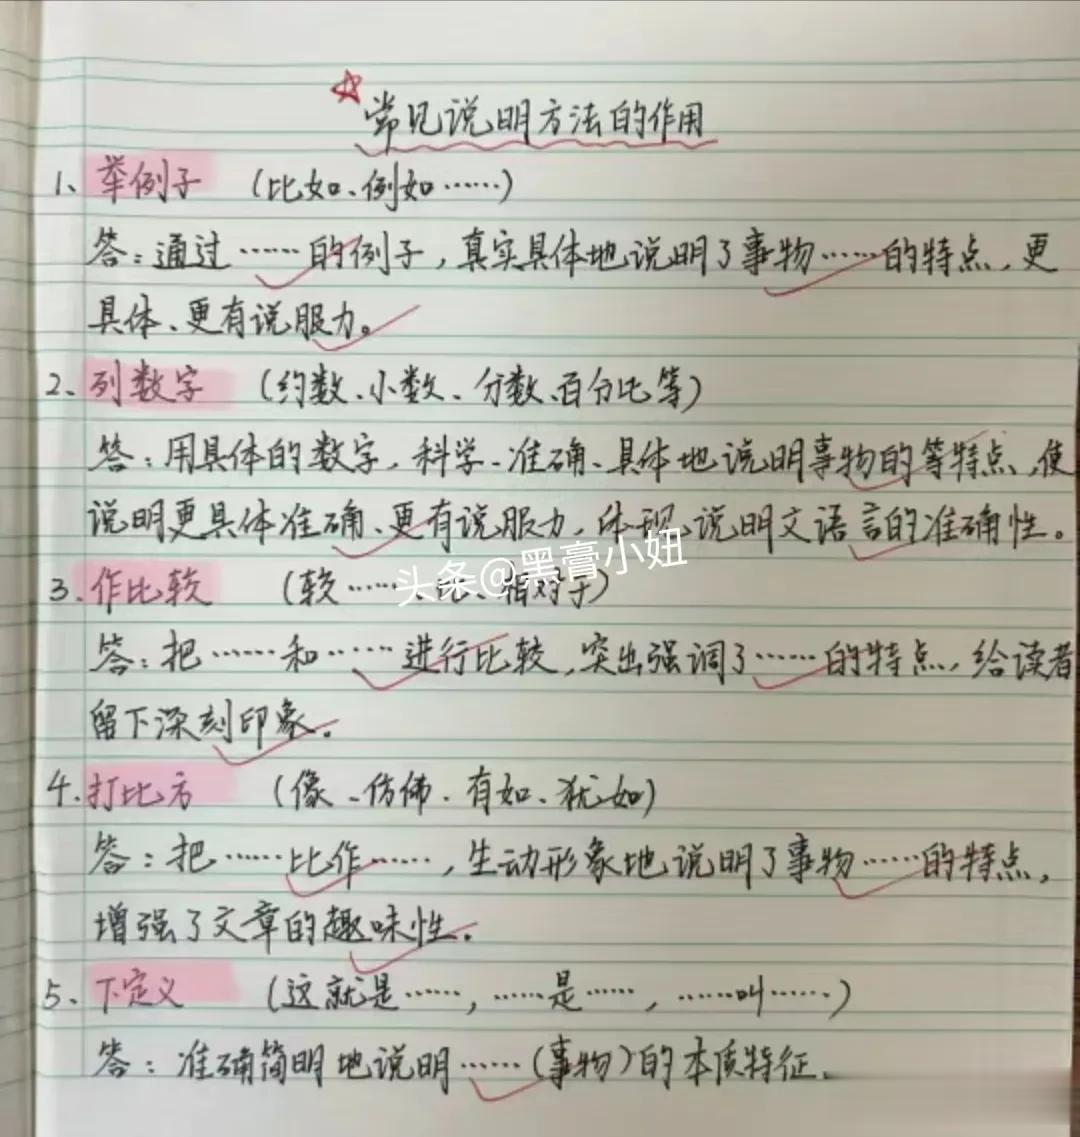 常见说明方法的作用
1、举例子 (比如、例如……)
答：通过……的例子，真实具体地说明了事物……的特点，更
具体、更有说服力。
2、列数字 (约数、小数、分数、百分比等)
答：用具体的数字，科学、准确、具体地说明事物的等特点，使
说明更具体准确、更有说服力，体现说明文语言的准确性。
头条@黑膏小妞
3、作比较 (较……、比、相对于)
答：把……和……进行比较，突出强调了……的特点，给读者
留下深刻印象。
4、打比方 (像、仿佛、有如、犹如)
答：把……比作……，生动形象地说明了事物……的特点，
增强了文章的趣味性。
5、下定义 (这就是……，……是……，……叫……)
答：准确简明地说明……(事物)的本质特征、